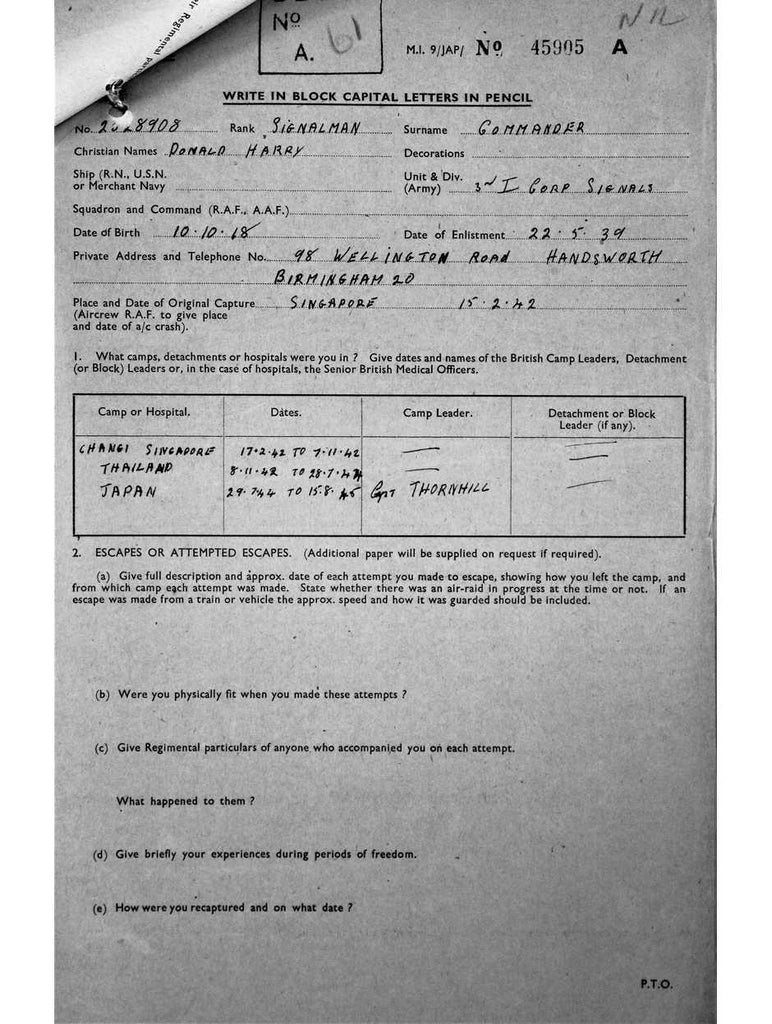 Nº
A. 61
M.I. 9/JAP/ Nº 45905 A
WRITE IN BLOCK CAPITAL LETTERS IN PENCIL
No. Rank SIGNALMAN Surname COMMANDER
Christian Names DONALD HARRY Decorations
Ship (R.N., U.S.N. or Merchant Navy
Unit & Div. (Army) 3rd I CORP SIGNALS
Squadron and Command (R.A.F., A.A.F.)
Date of Birth 10.10.18 Date of Enlistment 22.5.39
Private Address and Telephone No. 98 WELLINGTON ROAD HANDSWORTH
BIRMINGHAM 20
Place and Date of Original Capture SINGAPORE 15.2.42
(Aircrew R.A.F. to give place
and date of a/c crash).
1. What camps, detachments or hospitals were you in ? Give dates and names of the British Camp Leaders, Detachment
(or Block) Leaders or, in the case of hospitals, the Senior British Medical Officers.
Camp or Hospital. Dates. Camp Leader. Detachment or Block Leader (if any).
CHANGI SINGAPORE 17.2.42 TO 7.11.42 —
THAILAND 8.11.42 TO 28.7.44 —
JAPAN 29.7.44 TO 15.8.45 Cpt THORNHILL —
2. ESCAPES OR ATTEMPTED ESCAPES. (Additional paper will be supplied on request if required).
(a) Give full description and approx. date of each attempt you made to escape, showing how you left the camp, and
from which camp each attempt was made. State whether there was an air-raid in progress at the time or not. If an
escape was made from a train or vehicle the approx. speed and how it was guarded should be included.
(b) Were you physically fit when you made these attempts ?
(c) Give Regimental particulars of anyone who accompanied you on each attempt.
What happened to them ?
(d) Give briefly your experiences during periods of freedom.
(e) How were you recaptured and on what date ?
P.T.O.